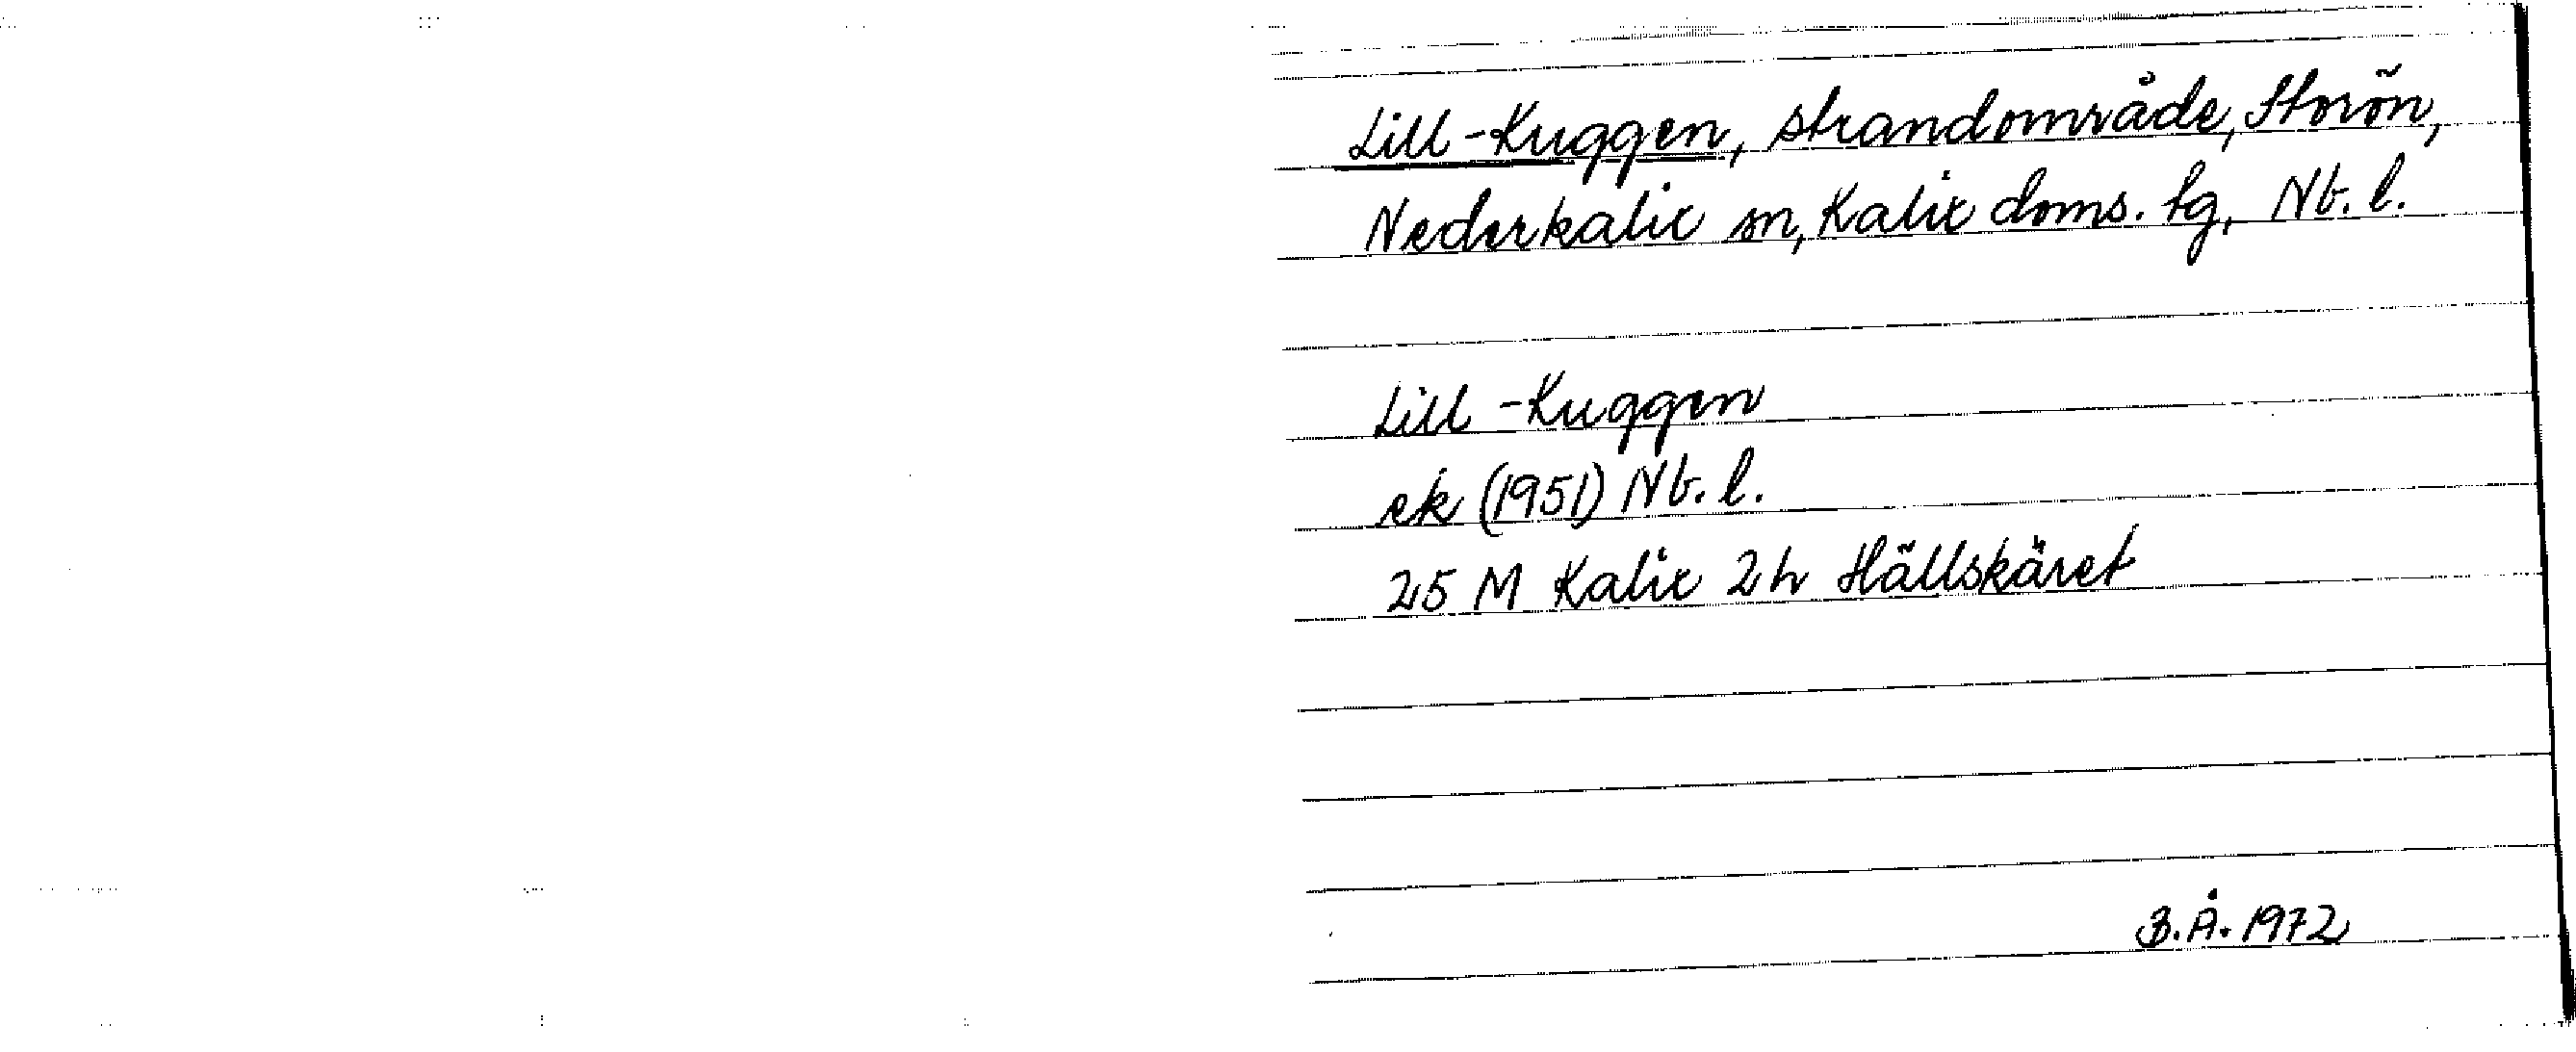 Lill-Kuggen, strandområde, Storön,
Nederkalix sn, Kalix doms. tg, Nb. l.
Lill-Kuggen
ek (1951) Nb. l.
25 M Kalix 2h Hällskäret
B.Å. 1972